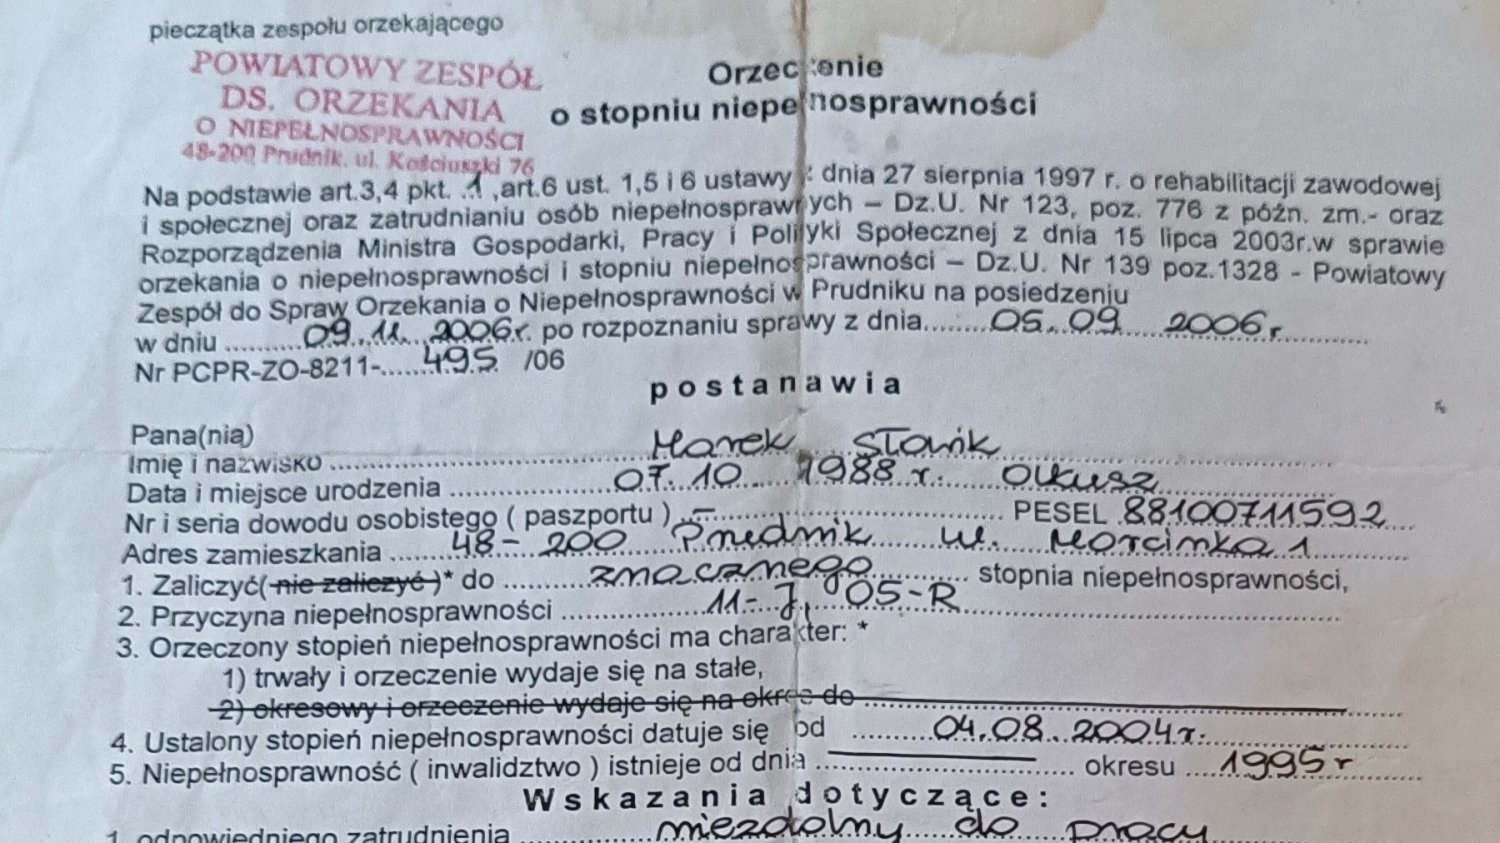 pieczątka zespołu orzekającego
POWIATOWY ZESPÓŁ
DS. ORZEKANIA
O NIEPEŁNOSPRAWNOŚCI
48-200 Prudnik, ul. Kościuszki 76
Orzeczenie
o stopniu niepełnosprawności
Na podstawie art.3,4 pkt. .1 ,art.6 ust. 1,5 i 6 ustawy z dnia 27 sierpnia 1997 r. o rehabilitacji zawodowej
i społecznej oraz zatrudnianiu osób niepełnosprawnych – Dz.U. Nr 123, poz. 776 z późn. zm.- oraz
Rozporządzenia Ministra Gospodarki, Pracy i Polityki Społecznej z dnia 15 lipca 2003r.w sprawie
orzekania o niepełnosprawności i stopniu niepełnosprawności – Dz.U. Nr 139 poz.1328 - Powiatowy
Zespół do Spraw Orzekania o Niepełnosprawności w Prudniku na posiedzeniu
w dniu 09.11.2006r. po rozpoznaniu sprawy z dnia 05.09 2006r.
Nr PCPR-ZO-8211- 495 /06
postanawia
Pana(nią)
Imię i nazwisko Marek Słowik
Data i miejsce urodzenia 07.10 1988 r. Olkusz
Nr i seria dowodu osobistego ( paszportu ) – PESEL 88100711592
Adres zamieszkania 48-200 Prudnik ul. Morcinka 1
1. Zaliczyć( nie zaliczyć )* do znacznego stopnia niepełnosprawności,
2. Przyczyna niepełnosprawności 11-J, 05-R
3. Orzeczony stopień niepełnosprawności ma charakter: *
1) trwały i orzeczenie wydaje się na stałe,
2) okresowy i orzeczenie wydaje się na okres do
4. Ustalony stopień niepełnosprawności datuje się od 04.08.2004r.
5. Niepełnosprawność ( inwalidztwo ) istnieje od dnia okresu 1995r
Wskazania dotyczące:
1. odpowiedniego zatrudnienia niezdolny do pracy